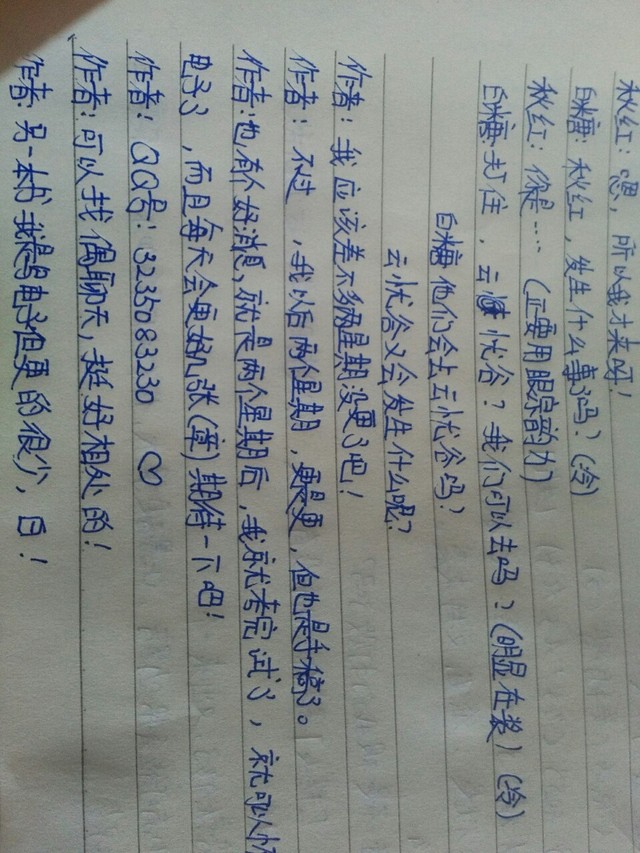 秋红：嗯，所以我才来呀！
白糖：秋红，发生什么事了吗？（冷）
秋红：你是……（正要用眼宗韵力）
白糖：打住，云忧谷？我们可以去吗？（明显在装）（冷）
白糖他们会去云忧谷吗？
云忧谷又会发生什么呢？
作者：我应该差不多两星期没更了吧！
作者：不过，我以后两个星期，更是更，但也是手稿了。
作者：也有个好消息，就是两个星期后，我就考完试了，就可以
电子了，而且每天会更好几张（章）期待一下吧！
作者：QQ号：3235083230 ♡
作者：可以找偶聊天，挺好相处的！
作者：另一本书我是电子但更的很少，白！